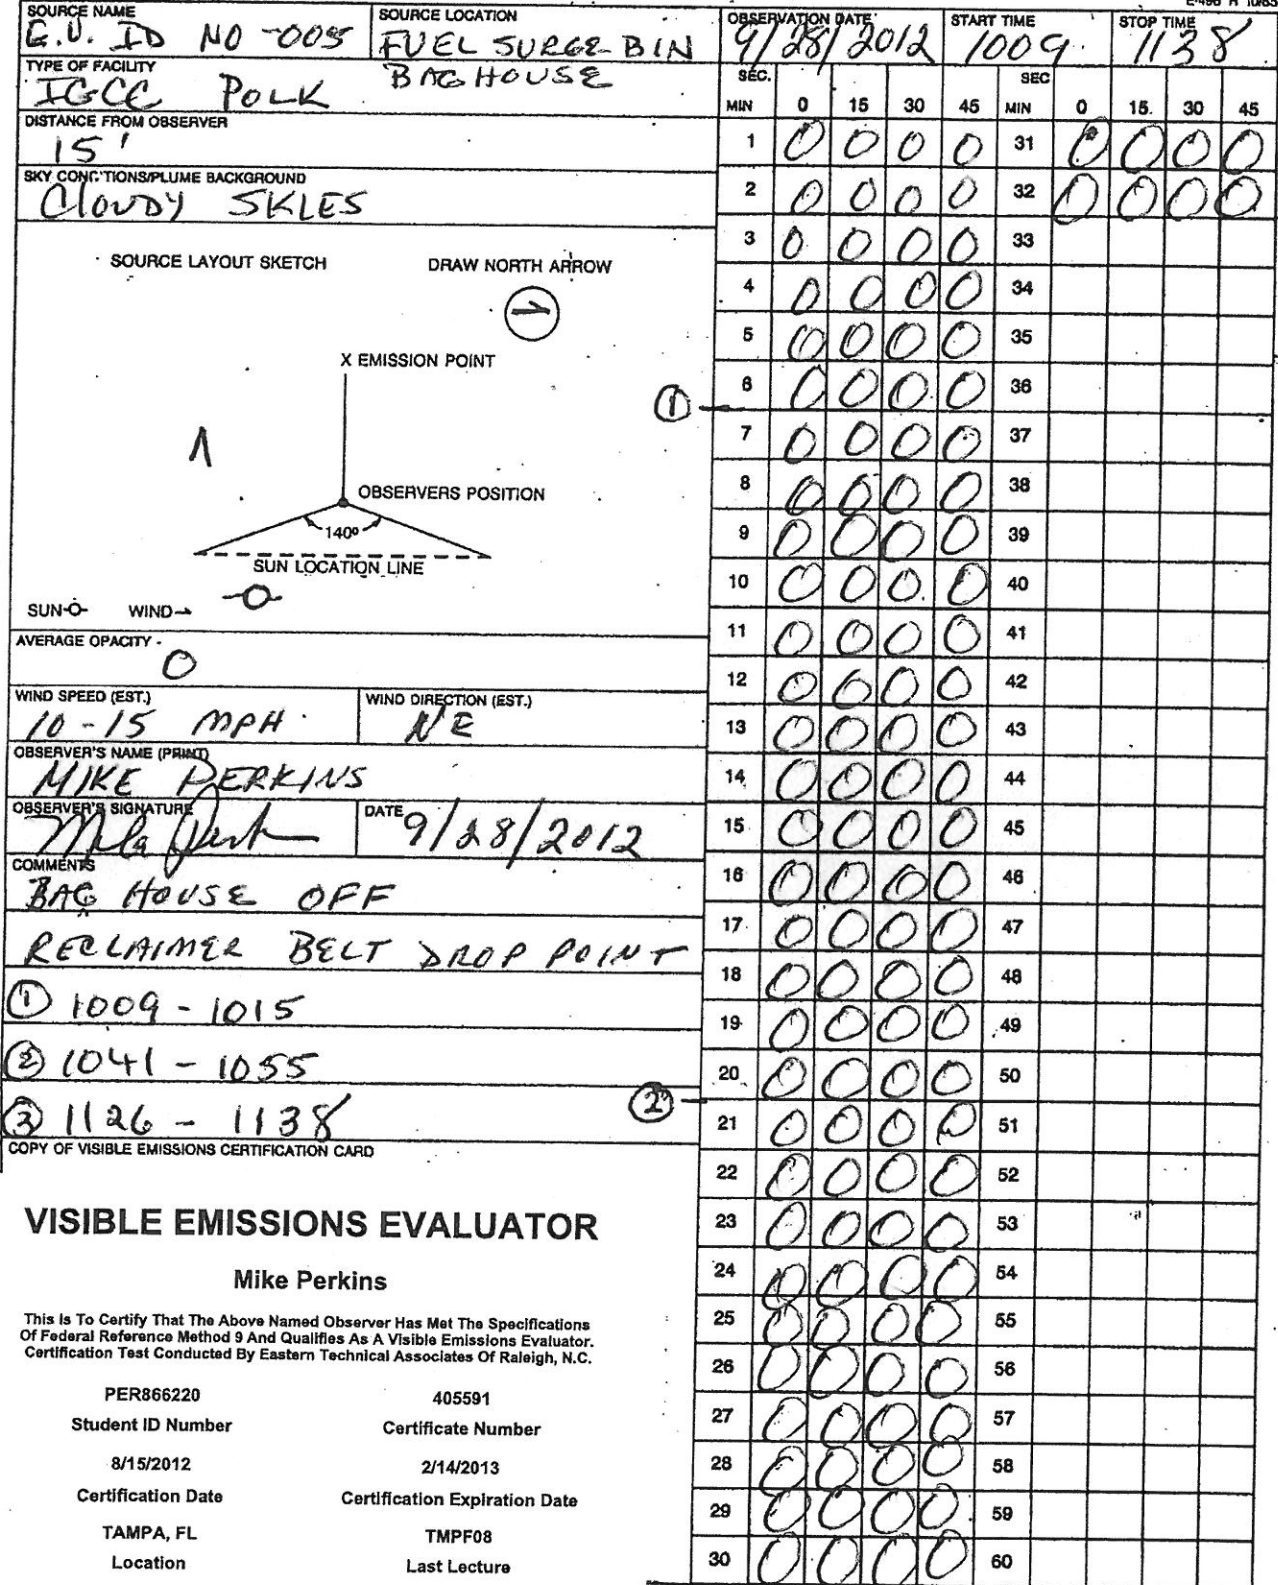 E-496 R 10/85
SOURCE NAME
E.U. ID NO -005
SOURCE LOCATION
FUEL SURGE BIN
BAGHOUSE
OBSERVATION DATE
9/28/2012
START TIME
1009
STOP TIME
1138
TYPE OF FACILITY
IGCC POLK
DISTANCE FROM OBSERVER
15'
SKY CONDITIONS/PLUME BACKGROUND
CLOUDY SKIES
SOURCE LAYOUT SKETCH
DRAW NORTH ARROW
X EMISSION POINT
OBSERVERS POSITION
140º
SUN LOCATION LINE
SUN WIND
AVERAGE OPACITY
0
WIND SPEED (EST.)
10-15 MPH
WIND DIRECTION (EST.)
NE
OBSERVER'S NAME (PRINT)
MIKE PERKINS
OBSERVER'S SIGNATURE
DATE
9/28/2012
COMMENTS
BAG HOUSE OFF
RECLAIMER BELT DROP POINT
① 1009 - 1015
② 1041 - 1055
③ 1126 - 1138
COPY OF VISIBLE EMISSIONS CERTIFICATION CARD
VISIBLE EMISSIONS EVALUATOR
Mike Perkins
This Is To Certify That The Above Named Observer Has Met The Specifications
Of Federal Reference Method 9 And Qualifies As A Visible Emissions Evaluator.
Certification Test Conducted By Eastern Technical Associates Of Raleigh, N.C.
PER866220 405591
Student ID Number Certificate Number
8/15/2012 2/14/2013
Certification Date Certification Expiration Date
TAMPA, FL TMPF08
Location Last Lecture
SEC. SEC
MIN 0 15 30 45 MIN 0 15. 30 45
1 0 0 0 0 31 0 0 0 0
2 0 0 0 0 32 0 0 0 0
3 0 0 0 0 33
4 0 0 0 0 34
5 0 0 0 0 35
6 0 0 0 0 36
①
7 0 0 0 0 37
8 0 0 0 0 38
9 0 0 0 0 39
10 0 0 0 0 40
11 0 0 0 0 41
12 0 0 0 0 42
13 0 0 0 0 43
14 0 0 0 0 44
15 0 0 0 0 45
16 0 0 0 0 46
17 0 0 0 0 47
18 0 0 0 0 48
19 0 0 0 0 49
20 0 0 0 0 50
②
21 0 0 0 0 51
22 0 0 0 0 52
23 0 0 0 0 53
24 0 0 0 0 54
25 0 0 0 0 55
26 0 0 0 0 56
27 0 0 0 0 57
28 0 0 0 0 58
29 0 0 0 0 59
30 0 0 0 0 60